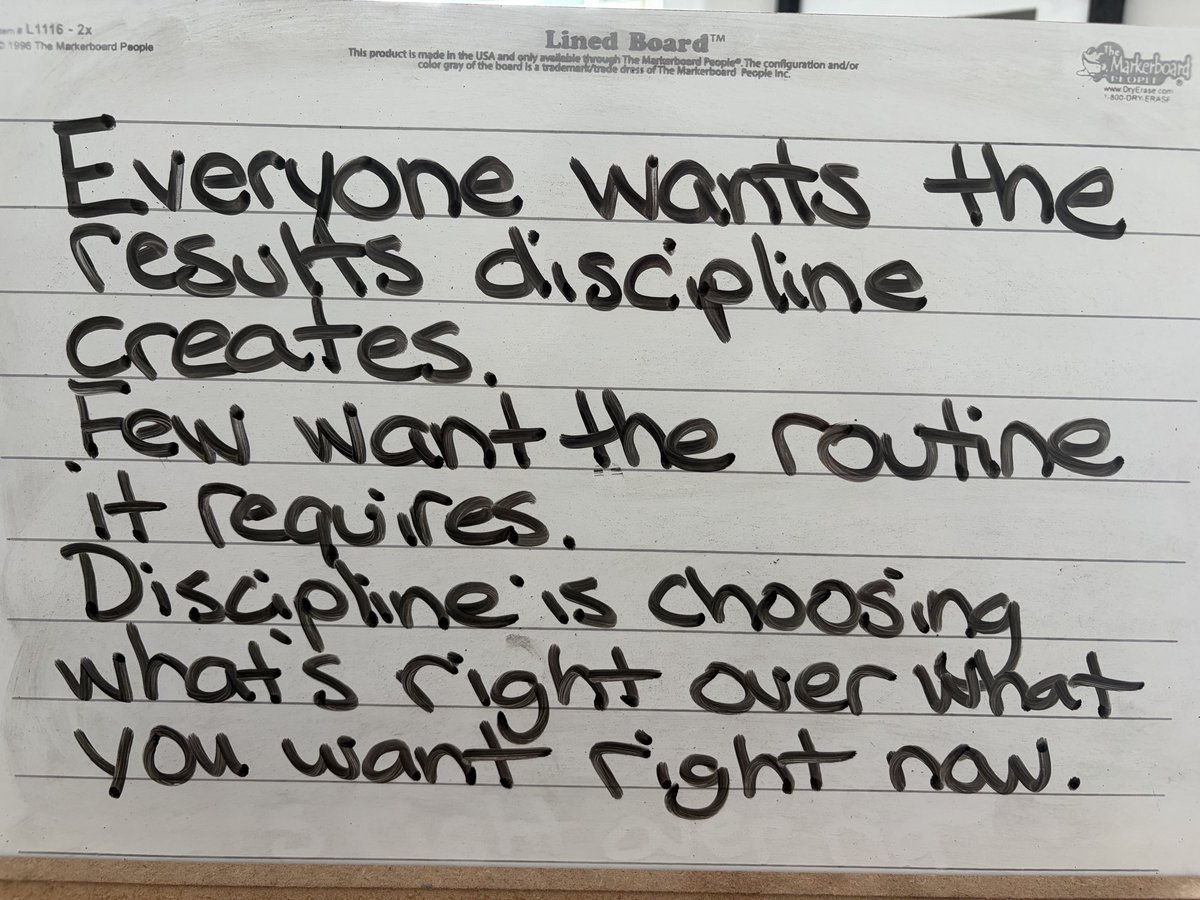 Item # L1116 - 2x
© 1996 The Markerboard People
Lined Board™
This product is made in the USA and only available through The Markerboard People®. The configuration and/or
color gray of the board is a trademark/trade dress of The Markerboard People Inc.
The
Markerboard
PEOPLE®
www.DryErase.com
1-800-DRY-ERASE
Everyone wants the
results discipline
creates.
Few want the routine
it requires.
Discipline is choosing
what's right over what
you want right now.